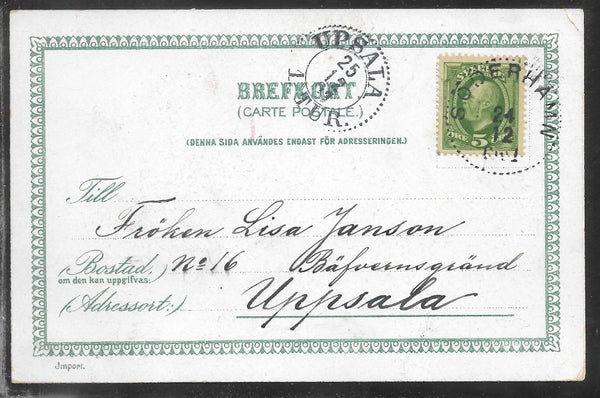 UPSALA
25
12
1 TUR.
BREFKORT
(CARTE POSTALE.)
(DENNA SIDA ANVÄNDES ENDAST FÖR ADRESSERINGEN.)
SÖDERHAMN
24
12
5
Till
Fröken Lisa Janson
(Bostad,) No 16 Bäfvernsgränd
om den kan uppgifvas:
(Adressort:) Uppsala
Import.